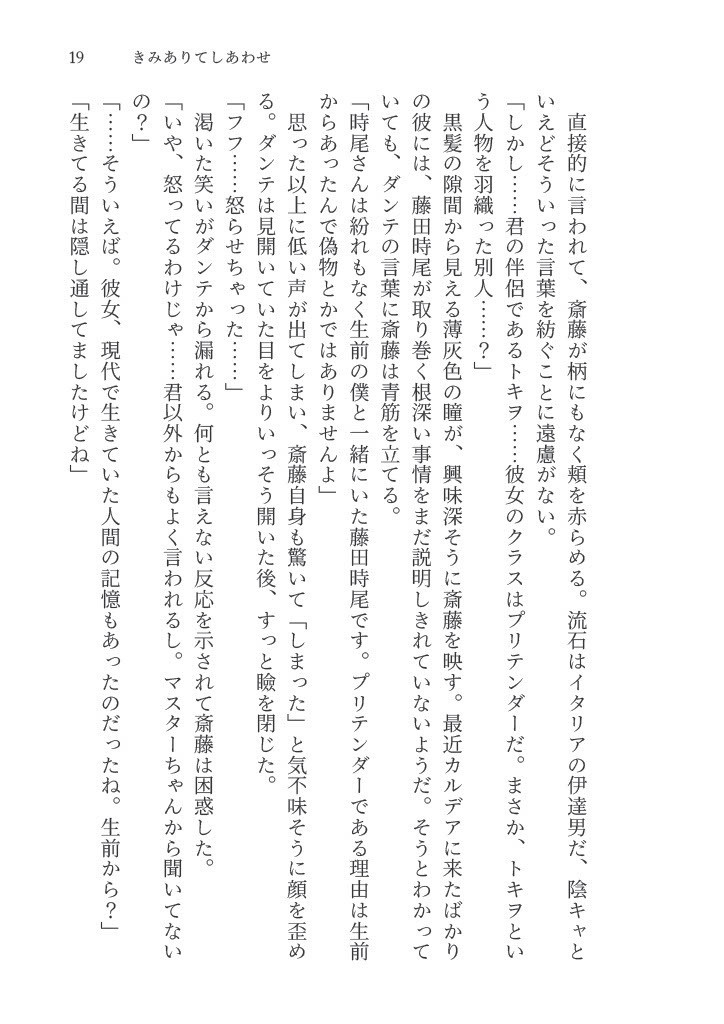 19 きみありてしあわせ
直接的に言われて、斎藤が柄にもなく頬を赤らめる。流石はイタリアの伊達男だ、陰キャと
いえどそういった言葉を紡ぐことに遠慮がない。
「しかし……君の伴侶であるトキヲ……彼女のクラスはプリテンダーだ。まさか、トキヲとい
う人物を羽織った別人……？」
黒髪の隙間から見える薄灰色の瞳が、興味深そうに斎藤を映す。最近カルデアに来たばかり
の彼には、藤田時尾が取り巻く根深い事情をまだ説明しきれていないようだ。そうとわかって
いても、ダンテの言葉に斎藤は青筋を立てる。
「時尾さんは紛れもなく生前の僕と一緒にいた藤田時尾です。プリテンダーである理由は生前
からあったんで偽物とかではありませんよ」
思った以上に低い声が出てしまい、斎藤自身も驚いて「しまった」と気不味そうに顔を歪め
る。ダンテは見開いていた目をよりいっそう開いた後、すっと瞼を閉じた。
「フフ……怒らせちゃった……」
渇いた笑いがダンテから漏れる。何とも言えない反応を示されて斎藤は困惑した。
「いや、怒ってるわけじゃ……君以外からもよく言われるし。マスターちゃんから聞いてない
の？」
「……そういえば。彼女、現代で生きていた人間の記憶もあったのだったね。生前から？」
「生きてる間は隠し通してましたけどね」